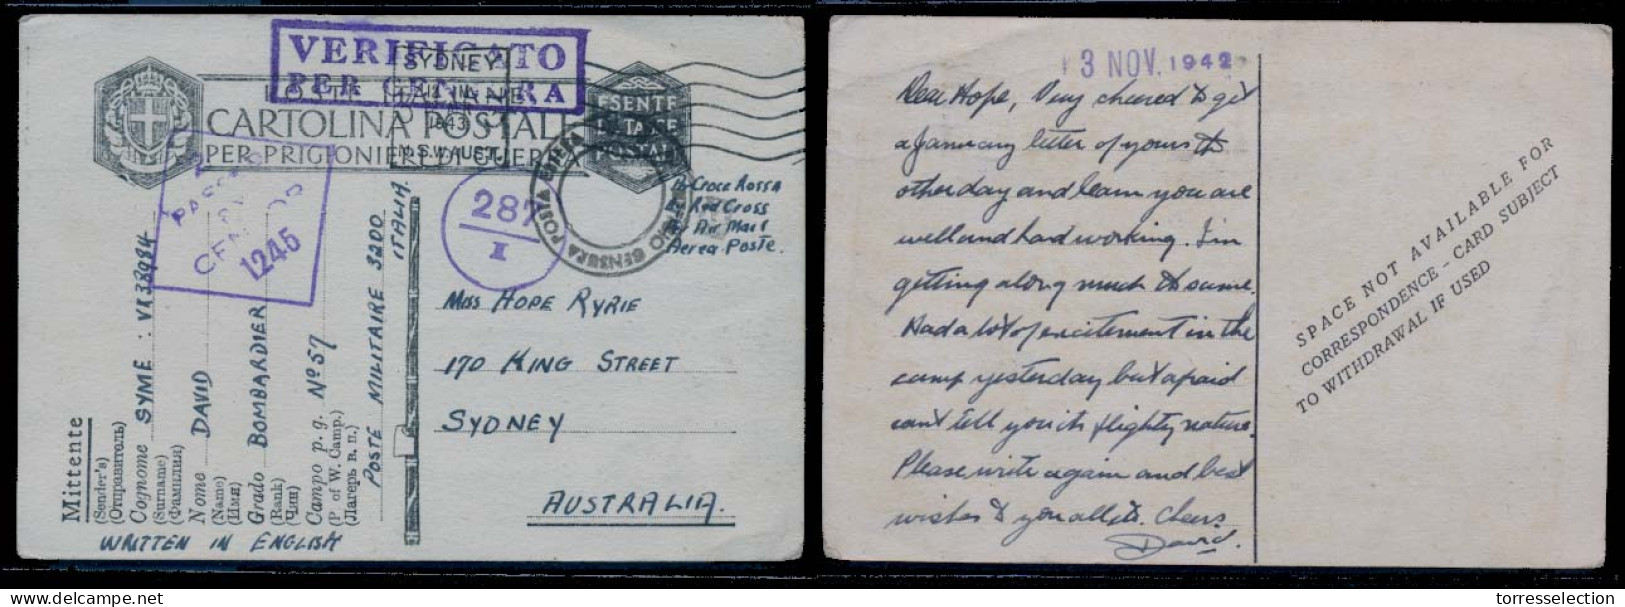 VERIFICATO
PER CENSURA
SYDNEY
1943
N.S.W. AUST.
POSTE ITALIANE
CARTOLINA POSTALE
PER PRIGIONIERI DI GUERRA
ESENTE
DA TASSE
POSTALI
PASSED
BY
CENSOR
1245
287
I
By Croce Rossa
By Red Cross
By Air Mail
Aerea Poste.
Miss HOPE RYRIE
170 KING STREET
SYDNEY
AUSTRALIA.
Mittente
(Sender's)
(Отправитель)
Cognome SYME : VX38984
(Surname)
(Фамилия)
Nome DAVID
(Name)
(Имя)
Grado BOMBARDIER
(Rank)
(Чин)
Campo p. g. No 57
(P of W. Camp.)
(Лагерь в. п.)
POSTE MILITAIRE 3200
ITALIA.
WRITTEN IN ENGLISH
3 NOV. 1942
Dear Hope, Very cheered to get
a January letter of yours th
other day and learn you are
well and hard working. I'm
getting along much th same.
Had a lot of excitement in the
camp yesterday but afraid
can't tell you its flighty nature.
Please write again and best
wishes to you all etc. Cheers
David.
SPACE NOT AVAILABLE FOR
CORRESPONDENCE - CARD SUBJECT
TO WITHDRAWAL IF USED
delcampe.net
torresselection